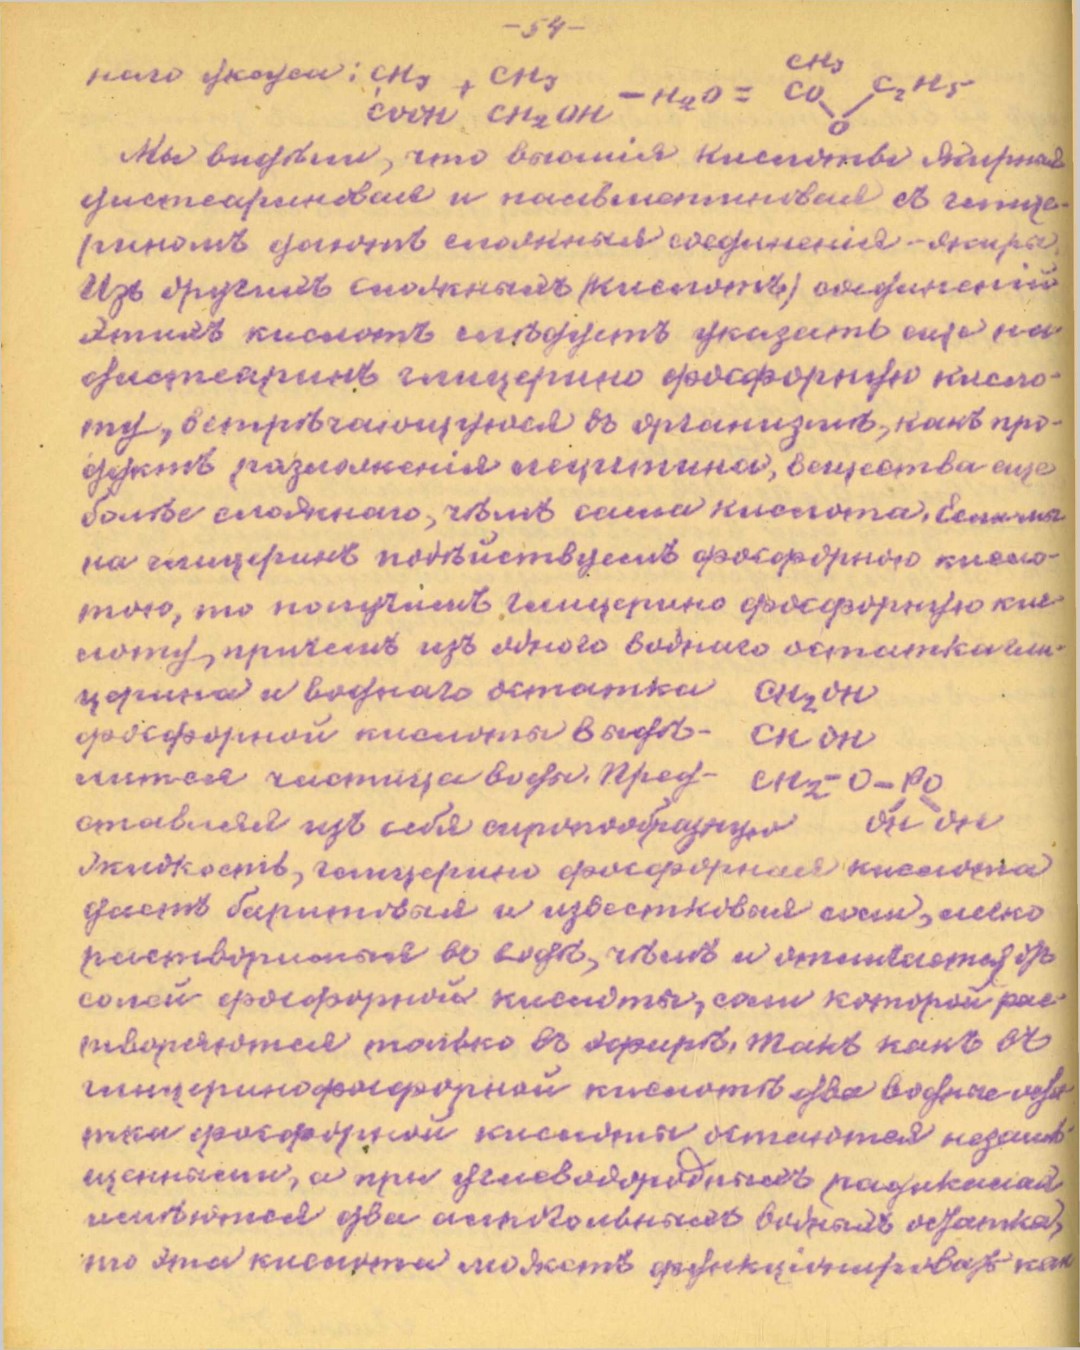 -54-
наго уксуса: CH3 + CH3 - H2O = CH3 CO O C2H5
COOH CH2OH
Мы видѣли, что высшія кислоты жирныя
дистеариновая и пальмитиновая съ глице-
риномъ даютъ сложныя соединенія - жиры.
Изъ другихъ сложныхъ (кислотъ) соединеній
этихъ кислотъ слѣдуетъ указать еще на
дистеаринъ глицерино фосфорную кисло-
ту, встрѣчающуюся въ организмѣ, какъ про-
дуктъ разложенія лецитина, вещества еще
болѣе сложнаго, чѣмъ сама кислота. Если мы
на глицеринъ подѣйствуемъ фосфорною кисло-
тою, то получимъ глицерино фосфорную кис-
лоту, причемъ изъ одного воднаго остатка гли-
церина и воднаго остатка CH2OH
фосфорной кислоты выдѣ- CHOH
лится частица воды. Пред- CH2-O-PO
ставляя изъ себя сиропообразную OH OH
жидкость, глицерино фосфорная кислота
даетъ баритовыя и известковыя соли, легко
растворимыя въ водѣ, чѣмъ и отличается отъ
солей фосфорной кислоты, соли которой рас-
творяются только въ эфирѣ. Такъ какъ въ
глицеринофосфорной кислотѣ два водные оста
тка фосфорной кислоты остаются незамѣ-
щенными, а при углеводородныхъ радикалах
имѣются два алкогольныхъ водныхъ остатка,
то эта кислота можетъ функціонировать как